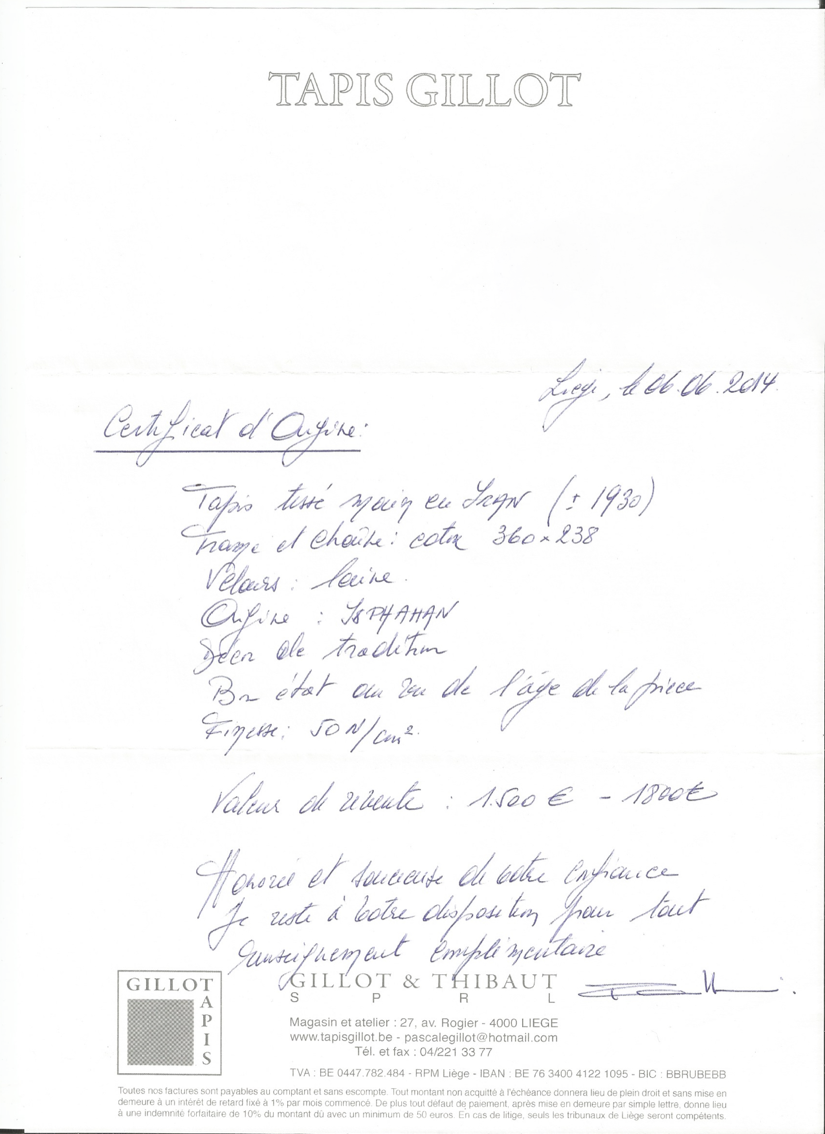 TAPIS GILLOT
Liège, le 06.06.2014
Certificat d'Origine:
Tapis tissé main en IRAN (± 1930)
Trame et chaîne: coton 360 x 238
Velours: laine.
Origine : ISPHAHAN
Décor de tradition
Bon état au vu de l'âge de la pièce
Finesse: 50 N/cm².
Valeur de revente : 1.500 € - 1800 €
Honorée et soucieuse de votre confiance
Je reste à votre disposition pour tout
renseignement complémentaire
GILLOT
TAPIS
GILLOT & THIBAUT
S P R L
Magasin et atelier : 27, av. Rogier - 4000 LIEGE
www.tapisgillot.be - pascalegillot@hotmail.com
Tél. et fax : 04/221 33 77
TVA : BE 0447.782.484 - RPM Liège - IBAN : BE 76 3400 4122 1095 - BIC : BBRUBEBB
Toutes nos factures sont payables au comptant et sans escompte. Tout montant non acquitté à l'échéance donnera lieu de plein droit et sans mise en
demeure à un intérêt de retard fixé à 1% par mois commencé. De plus tout défaut de paiement, après mise en demeure par simple lettre, donne lieu
à une indemnité forfaitaire de 10% du montant dû avec un minimum de 50 euros. En cas de litige, seuls les tribunaux de Liège seront compétents.